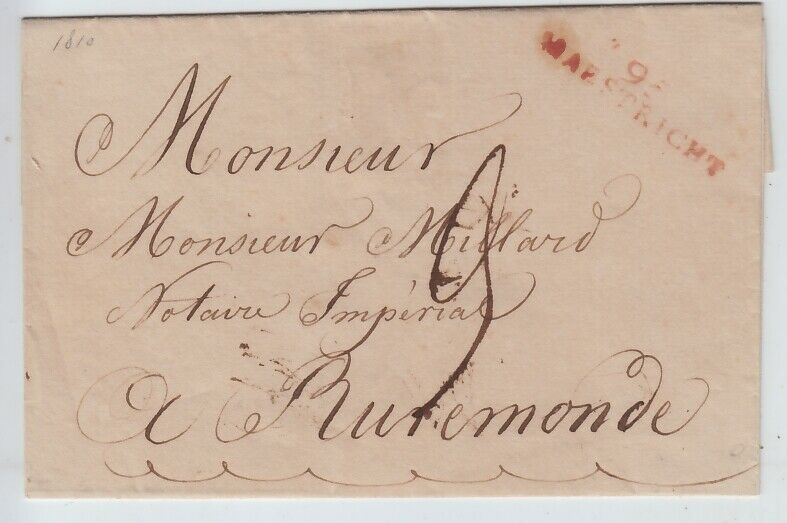 1810
94
MAESTRICHT
Monsieur
Monsieur Millard
Notaire Impérial
a Ruremonde